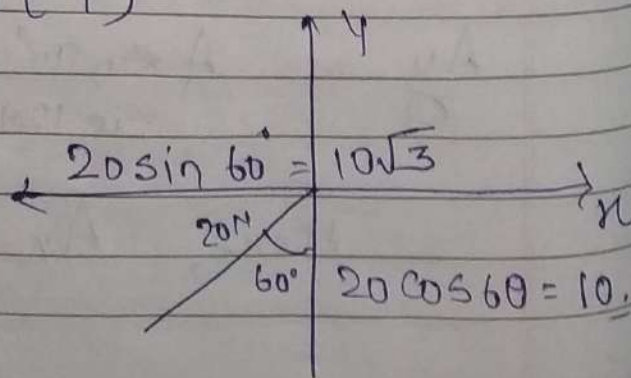 (1)
y
20 sin 60° = 10√3
x
20N
60° 20 cos 60 = 10.